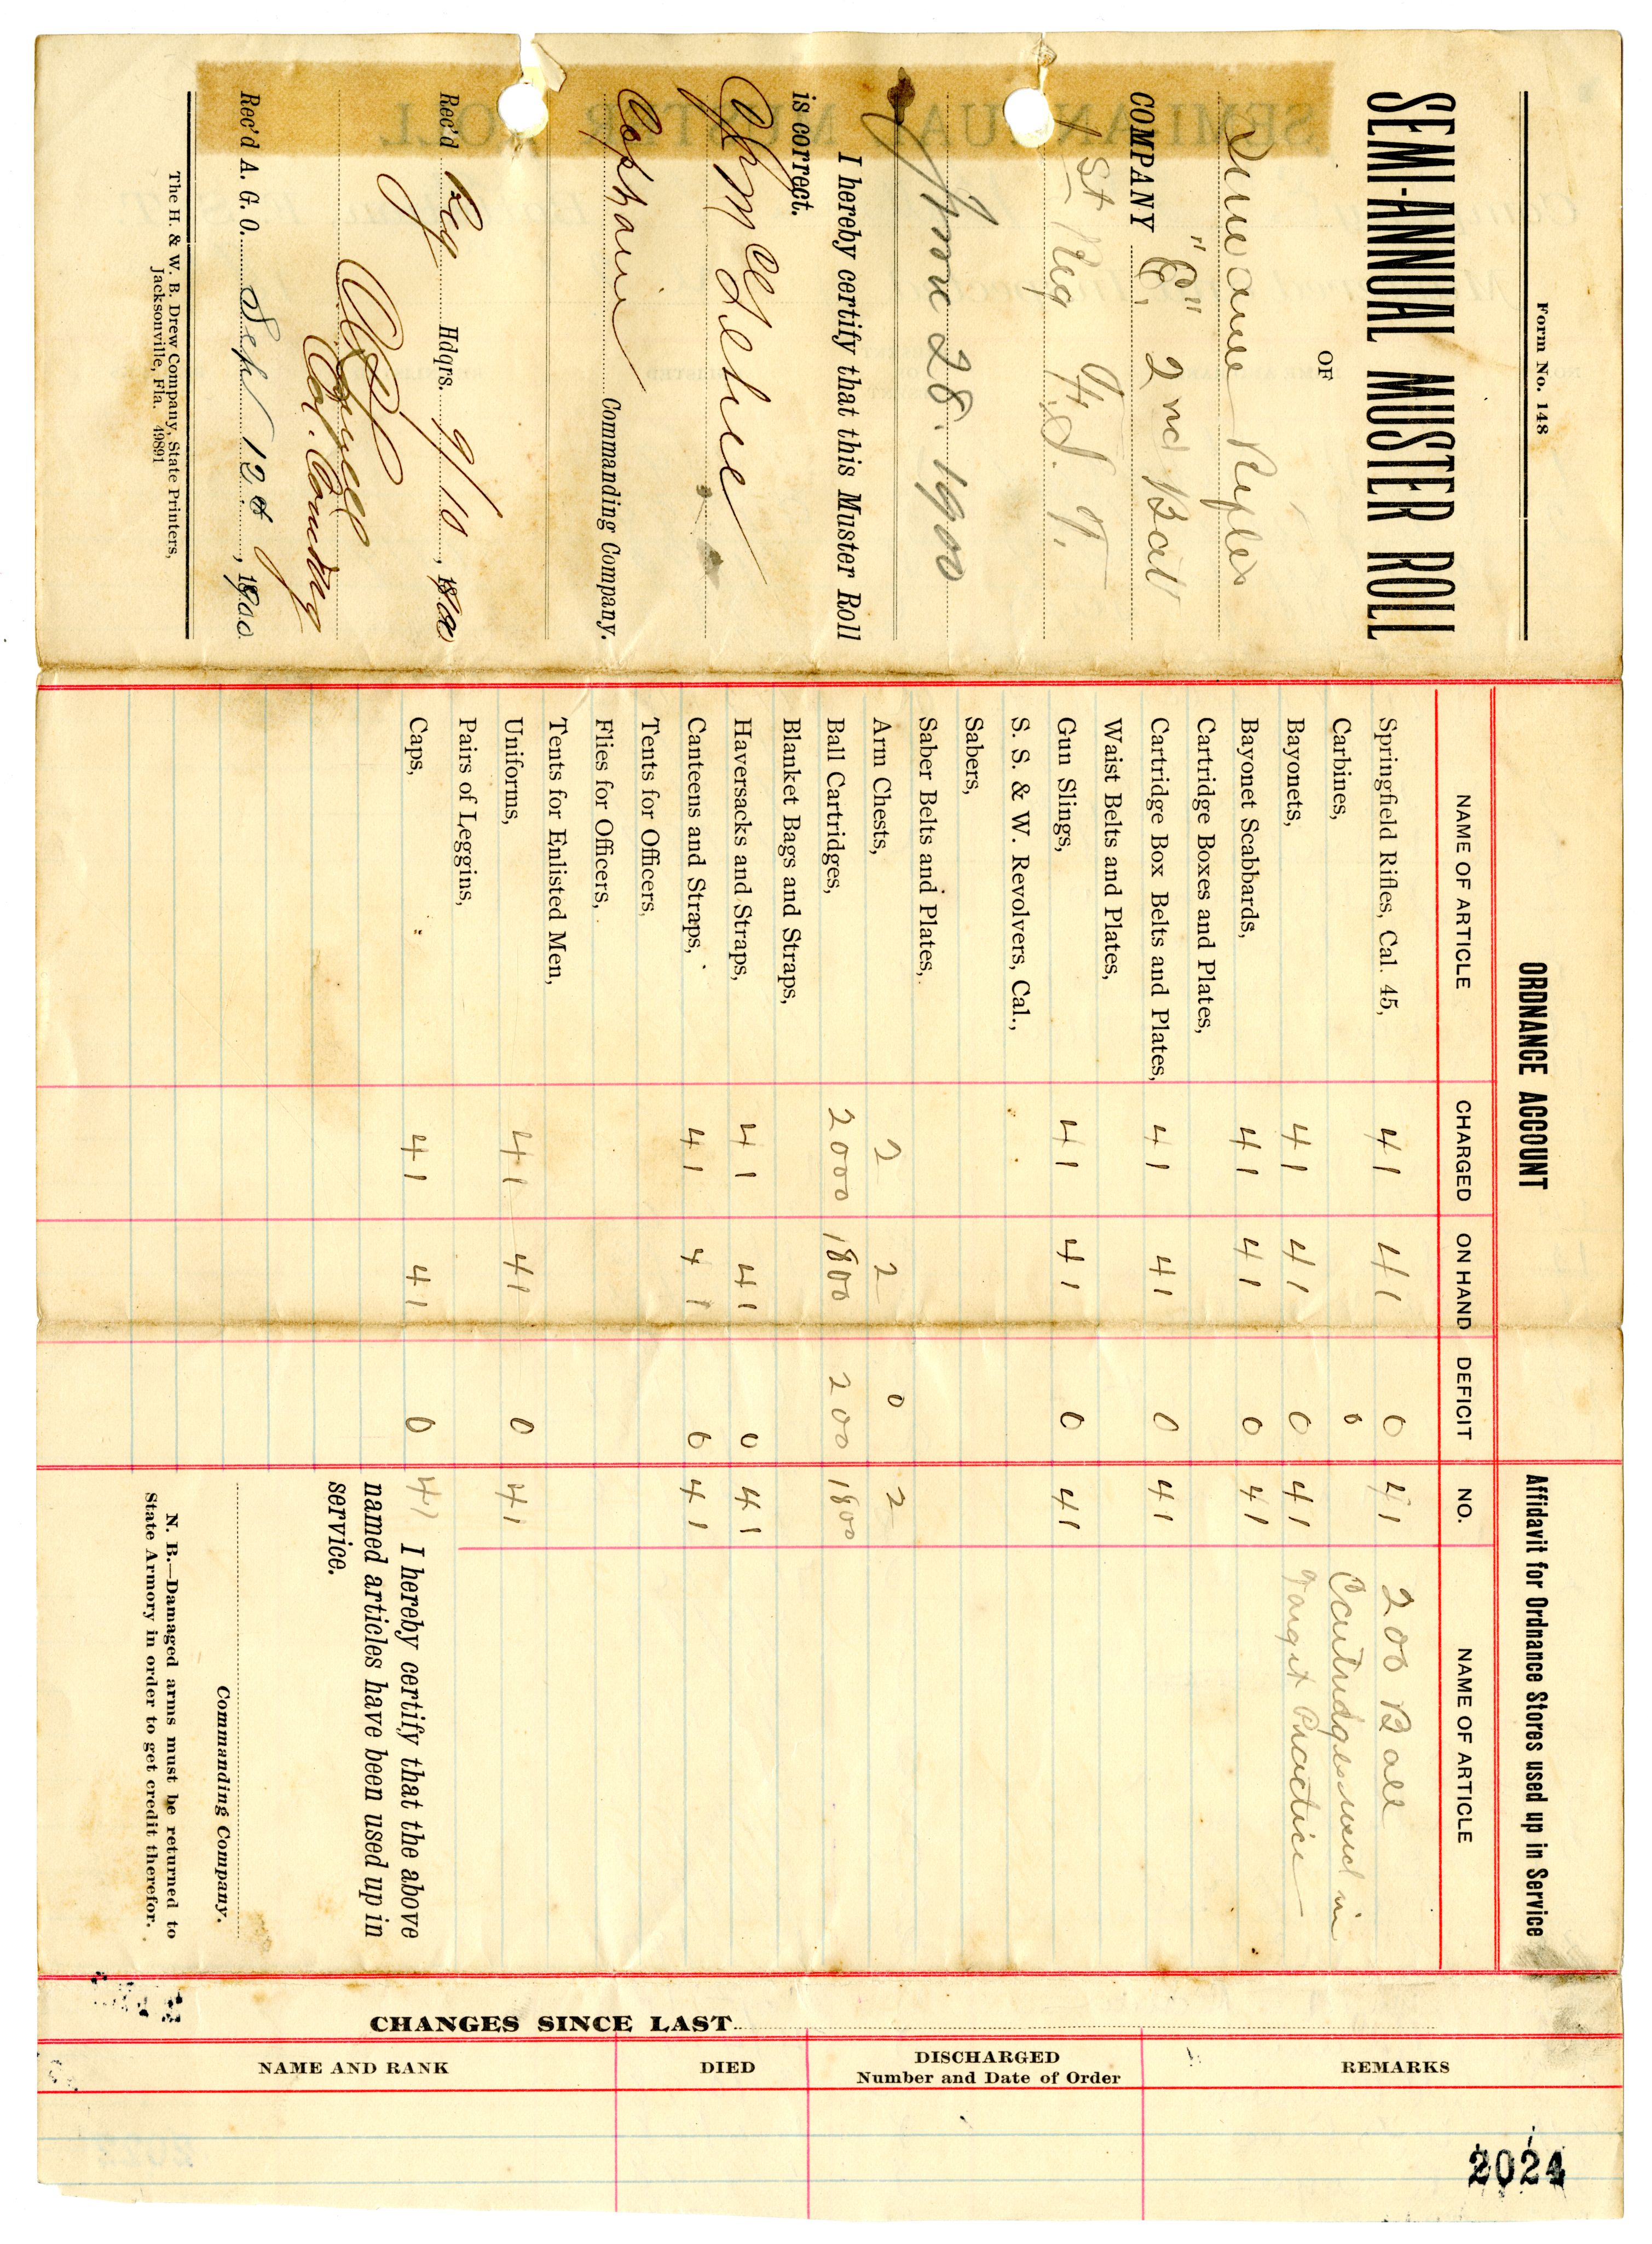 Form No. 148
SEMI-ANNUAL MUSTER ROLL
OF
Suwanee Rifles
COMPANY "E" 2nd Bat
1st Reg F. S. T.
June 28. 1900
I hereby certify that this Muster Roll
is correct.
Captain Commanding Company.
Rec'd Reg Hdqrs. 9/10, 1900
Col. Comdg
Rec'd A. G. O. Sept 12th, 1900
The H. & W. B. Drew Company, State Printers,
Jacksonville, Fla. 49891
ORDNANCE ACCOUNT
NAME OF ARTICLE CHARGED ON HAND DEFICIT
Springfield Rifles, Cal. 45, 41 41 0
Carbines, 0
Bayonets, 41 41 0
Bayonet Scabbards, 41 41 0
Cartridge Boxes and Plates,
Cartridge Box Belts and Plates, 41 41 0
Waist Belts and Plates,
Gun Slings, 41 41 0
S. S. & W. Revolvers, Cal.,
Sabers,
Saber Belts and Plates,
Arm Chests, 2 2 0
Ball Cartridges, 2000 1800 200
Blanket Bags and Straps,
Haversacks and Straps, 41 41 0
Canteens and Straps, 41 41 0
Tents for Officers,
Flies for Officers,
Tents for Enlisted Men,
Uniforms, 41 41 0
Pairs of Leggins,
Caps, 41 41 0
Affidavit for Ordnance Stores used up in Service
NO. NAME OF ARTICLE
41 200 Ball
Cartridges used in
41 Target Practice
41
41
41
2
1800
41
41
41
41
I hereby certify that the above
named articles have been used up in
service.
Commanding Company.
N. B.—Damaged arms must be returned to
State Armory in order to get credit therefor.
CHANGES SINCE LAST
NAME AND RANK DIED DISCHARGED REMARKS
Number and Date of Order
2024